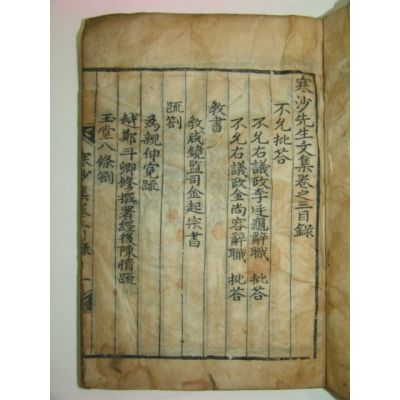 寒沙先生文集卷之三目錄
不允批答
不允右議政李廷龜辭職 批答
不允右議政金尚容辭職 批答
教書
教咸鏡監司金起宗書
疏劄
為親伸寃疏
越鄭斗卿修撰署經後陳情疏
玉堂八條劄
寒沙集卷 目錄 一